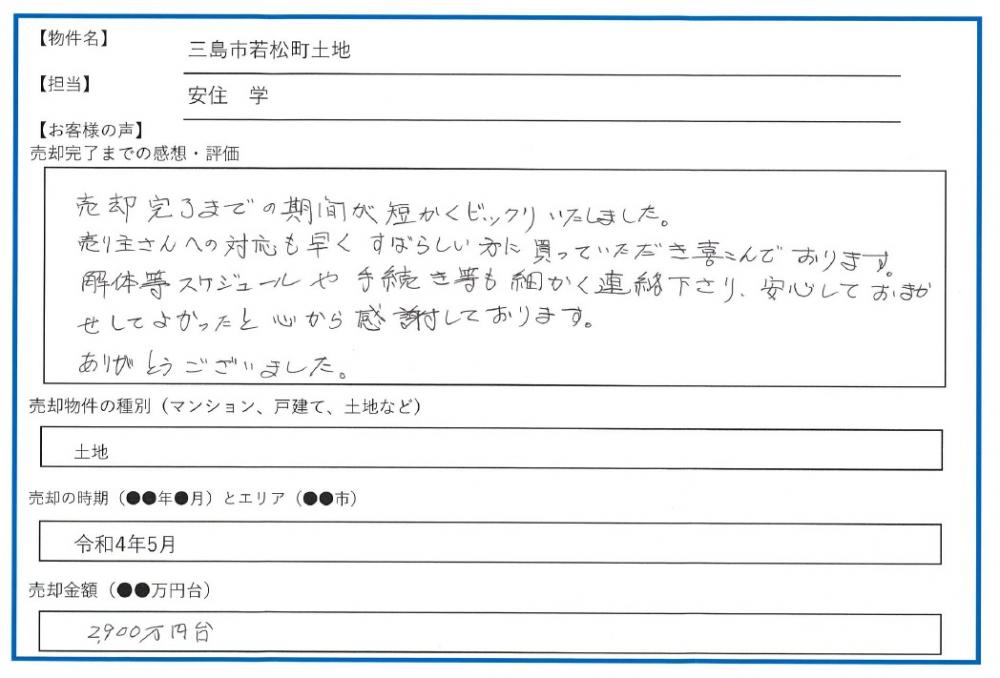 【物件名】
三島市若松町土地
【担当】
安住 学
【お客様の声】
売却完了までの感想・評価
売却完了までの期間が短かくビックリいたしました。
売り主さんへの対応も早くすばらしい方に買っていただき喜こんでおります。
解体等スケジュールや手続き等も細かく連絡下さり、安心しておまか
せしてよかったと心から感謝しております。
ありがとうございました。
売却物件の種別（マンション、戸建て、土地など）
土地
売却の時期（●●年●月）とエリア（●●市）
令和4年5月
売却金額（●●万円台）
2,900万円台